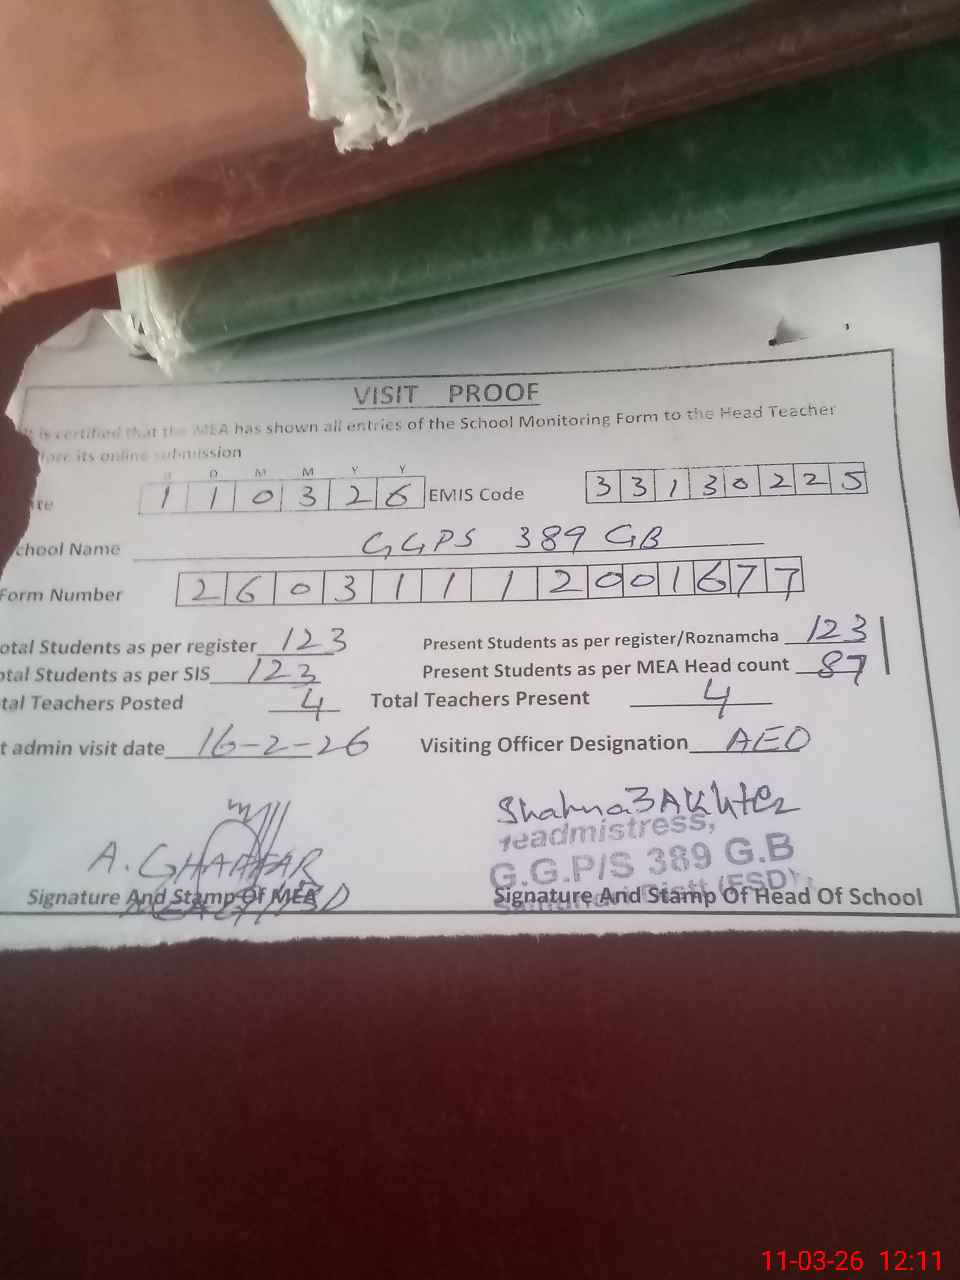 VISIT PROOF
It is certified that the MEA has shown all entries of the School Monitoring Form to the Head Teacher
fore its online submission
D D M M Y Y
ate 1 1 0 3 2 6 EMIS Code 3 3 1 3 0 2 2 5
chool Name GGPS 389 GB
Form Number 2 6 0 3 1 1 1 2 0 0 1 6 7 7
otal Students as per register 123 Present Students as per register/Roznamcha 123
otal Students as per SIS 123 Present Students as per MEA Head count 87
tal Teachers Posted 4 Total Teachers Present 4
t admin visit date 16-2-26 Visiting Officer Designation AEO
Shahnaz Akhter
eadmistress,
A. GHAFFAR G.G.P/S 389 G.B
(FSD)
Signature And Stamp Of MEA Signature And Stamp Of Head Of School
11-03-26 12:11